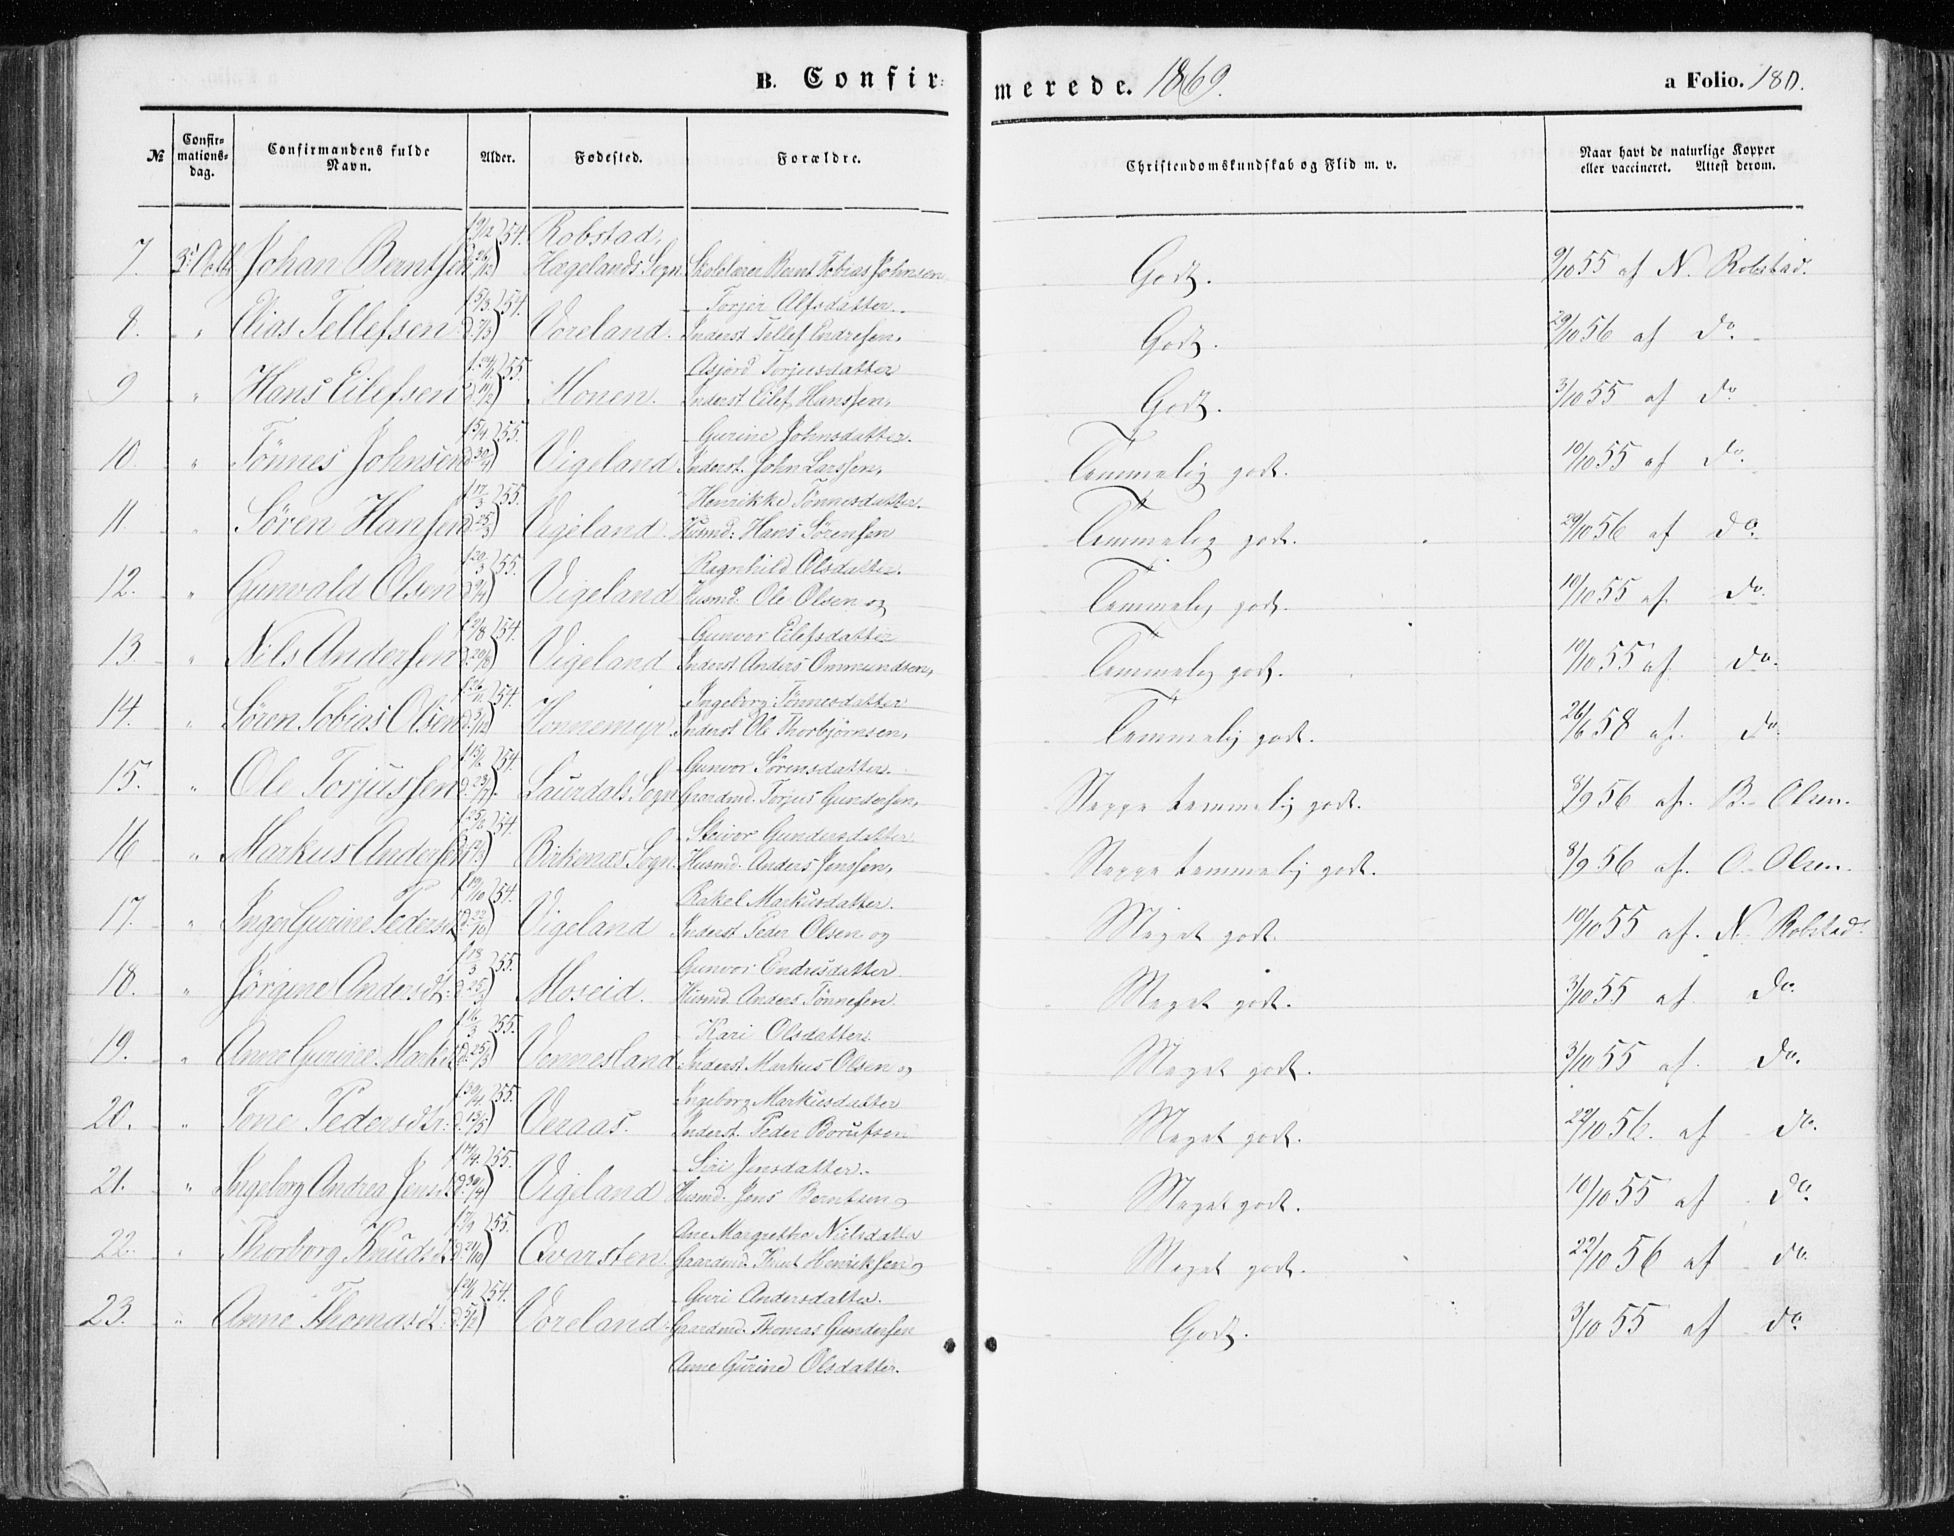 B. Confir:
merede. 1869.
a Folio. 180.
№
Confir-
mations-
dag.
Confirmandens fulde
Navn.
Alder.
Fødested.
Forældre.
Christendomskundskab og Flid m. v.
Naar havt de naturlige Kopper
eller vaccineret. Attest derom.
7. 3. Oct. Johan Berntsen 54. Robstad, Hægelands Sogn Skolelærer Bernt Tobias Johnsen, Torjer Alfsdatter. Godt. 9/10 55 af N. Robstad.
8. " Elias Tellefsen 15/3 54. Voreland. Inderst Tellef Andresen, Asjørd Torjusdatter Godt. 29/10 56 af do.
9 " Hans Eilefsen 55. Monen. Inderst Eilef Hanssen, Gurine Johnsdatter. Godt. 3/10 55 af do
10. " Tönnes Johnsen 15/4 55. Vigeland Inderst. John Larssen, Henrikke Tönnesdatter. Temmelig godt. 10/10 55 af do.
11. " Sören Hansen 17/3 55. Vigeland. Husmd: Hans Sörensen Ragnhild Olsdatter. Temmelig godt. 29/10 56 af do.
12. " Gunvald Olsen 20/3 55. Vigeland Husmd. Ole Olsen og Gunvor Eilefsdatter Temmelig godt. 10/10 55 af do.
13 " Nils Andersen 54. Vigeland Inderst Anders Ommundsen, Ingeborg Tönnesdatter Temmelig godt. 10/10 55 af do.
14. " Sören Tobias Olsen 54. Honnemyr Inderst Ole Thorbjörnsen, Gunvor Sörensdatter. Temmelig godt. 26/6 58 af do
15. " Ole Torjussen 54. Laurdals Sogn Gaardmd. Torjus Gundersen, Steivor Gundersdatter. Neppe temmelig godt. 8/9 56 af. B. Olsen.
16 " Markus Andersen 54. Birkenæs Sogn. Husmd. Anders Jenssen, Rakel Markusdatter. Neppe temmelig godt. 8/9 56 af. O. Olsen.
17. " Inger Gurine Pedersd. 19/10 54. Vigeland Inderst Peder Olsen og Gunvor Endresdatter Meget godt. 10/10 55 af. N. Robstad.
18. " Jörgine Andersdt. 18/3 55. Moseid. Husmd. Anders Tönnesen Kari Olsdatter. Meget godt. 3/10 55 af do.
19. " Anne Gurine Markusd. 16/3 55. Vennesland Inderst Markus Olsen og Ingeborg Markusdatter Meget godt. 3/10 55 af. do.
20. " Tone Pedersdtr. 30/4 55. Veraas. Inderst. Peder Borufsen Siri Jensdatter. Meget godt. 22/10 56. af do.
21. " Ingeborg Andrea Jensd. 17/4 55. Vigeland Husmd. Jens Berntsen, Ane Margrethe Nielsdatter Meget godt. 10/10 55 af do.
22. " Thorborg Knudsd. 55. Qvarsten. Gaardmd. Knut Henriksen, Guri Andersdatter. Meget godt. 22/10 56 af do.
23. " Anne Thomasdt. 54. Voreland. Gaardmd. Thomas Gundersen Anne Gurine Olsdatter. Godt. 3/10 55 af do.